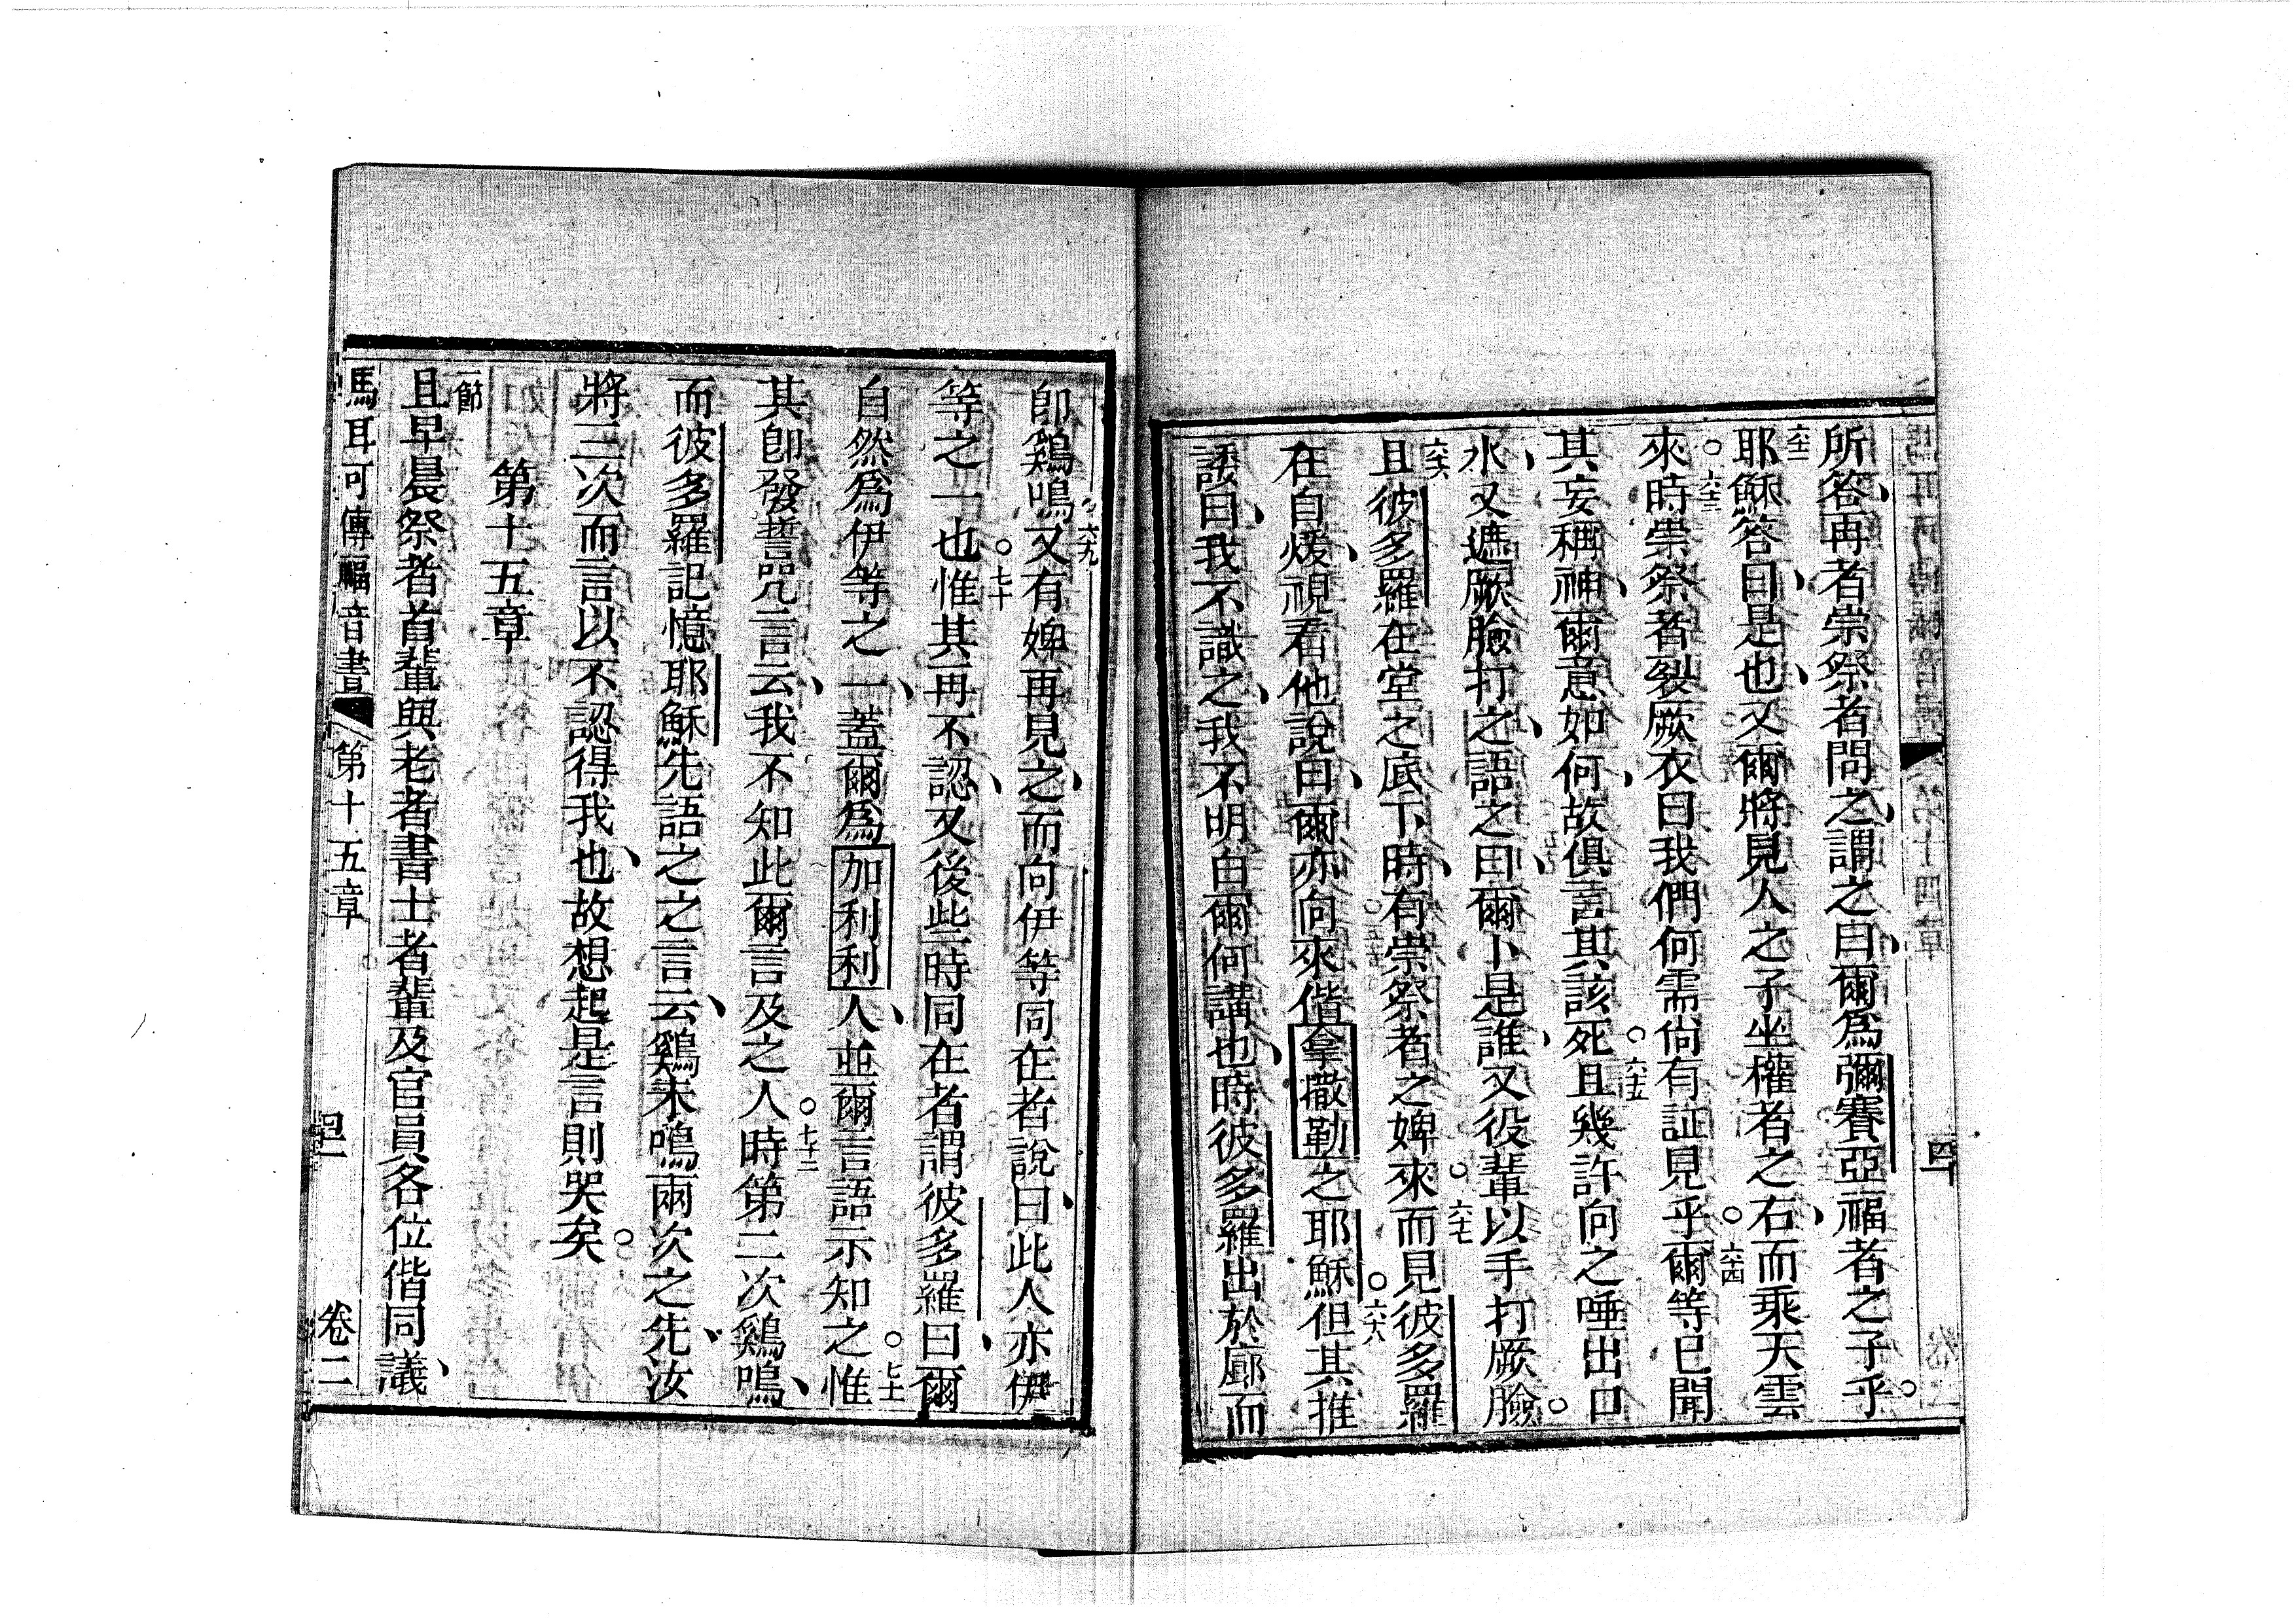 所答、再者崇祭者問之、謂之曰、爾爲彌賽亞福者之子乎。
六二耶穌答曰、是也、又爾將見人之子坐權者之右、而乘天雲
來時。六三崇祭者裂厥衣曰我們何需尚有証見乎。六四爾等已聞
其妄稱神、爾意如何、故俱言其該死。六五且幾許向之唾出口
水、又遮厥臉打之、語之曰、爾卜是誰、又役輩以手打厥臉。
六六且彼多羅在堂之底下時、有崇祭者之婢來。六七而見彼多羅
在自煖、視看他說曰、爾亦向來偕拿撒勒之耶穌。六八但其推
諉曰、我不識之、我不明白爾何講也、時彼多羅出於廊而
卽鷄鳴。六九又有婢再見之、而向伊等同在者說曰、此人亦伊
等之一也。七十惟其再不認、又後些時同在者謂彼多羅曰、爾
自然爲伊等之一、蓋爾爲加利利人、並爾言語示知之。七一惟
其卽發誓凡言云、我不知此爾言及之人。七二時第二次鷄鳴、
而彼多羅記憶耶穌先語之之言云、鷄未鳴兩次之先、汝
將三次而言以不認得我也、故想起是言則哭矣。
第十五章
一節且早晨祭者首輩與老者書士者輩及官員各位偕同議、
馬耳可傳福音書 第十五章 卷二